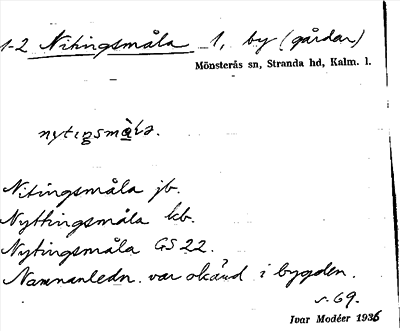 1-2 Nitingsmåla 1, by (gårdar)
Mönsterås sn, Stranda hd, Kalm. l.
nytıgsmåla.
Nitingsmåla jb.
Nyttingsmåla kb.
Nytingsmåla GS 22.
Namnanledn. var okänd i bygden.
s. 69.
Ivar Modéer 1936